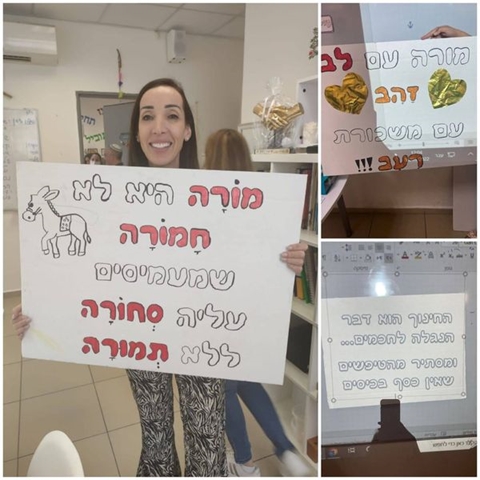 מוֹרָה היא לא
חֲמוֹרָה
שמעמיסים
עליה סְחוֹרָה
ללא תְּמוּרָה
מורה עם לב
זהב
עם משכורת
רעב !!!
החינוך הוא דבר
הנגלה לחכמים...
ומסתיר מהטיפשים
שאין כסף בכיסים